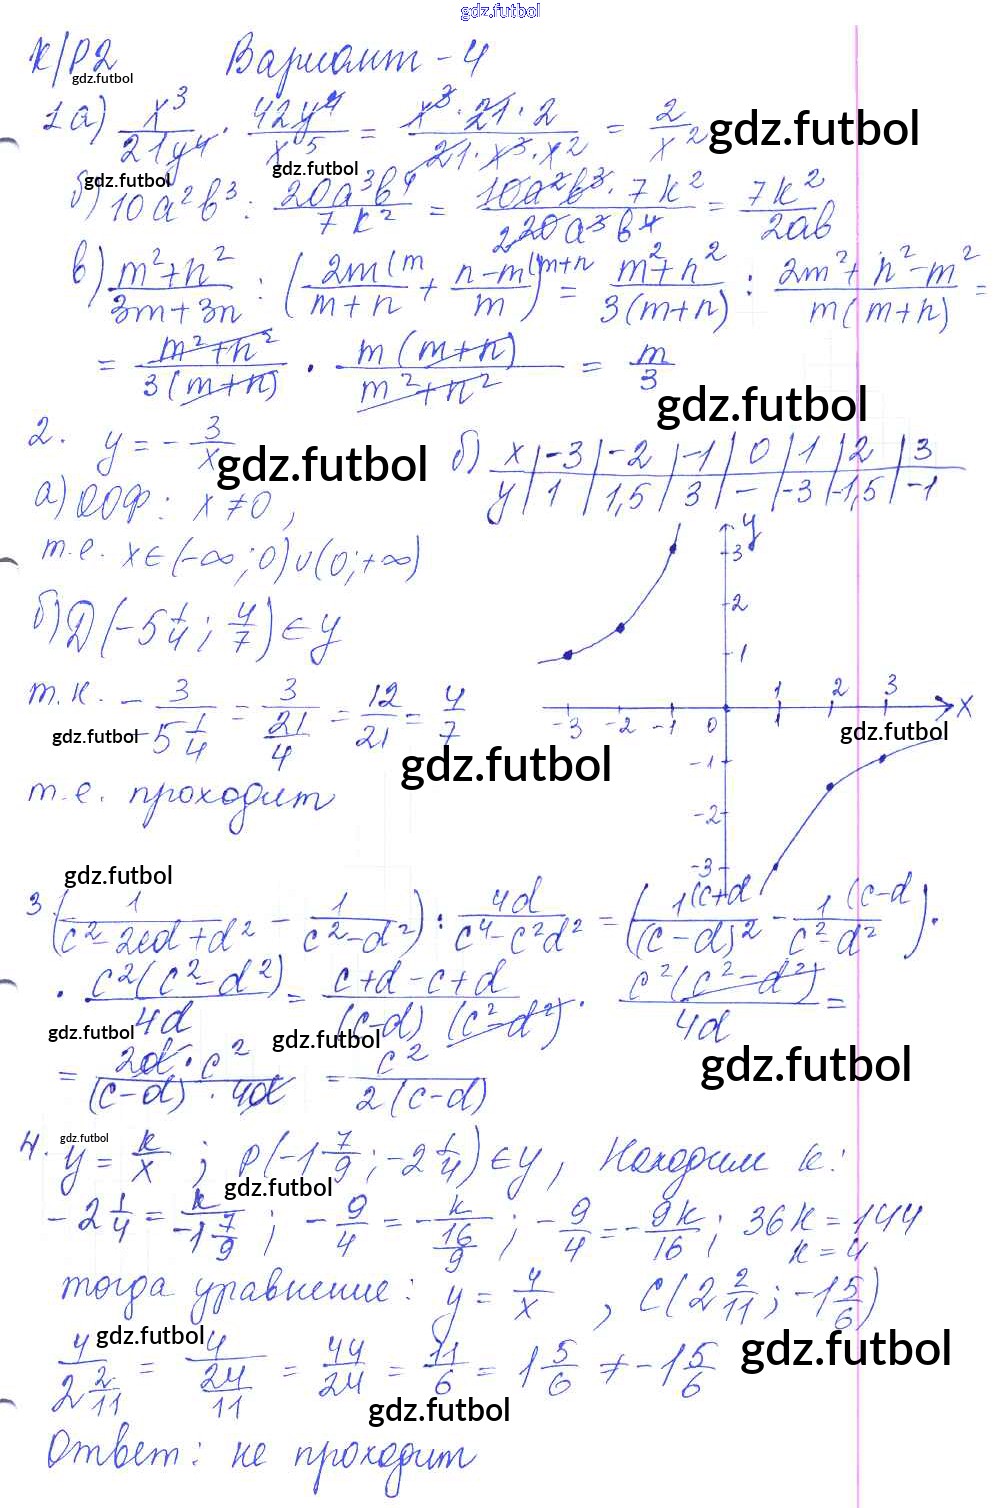 gdz.futbol
К/Р2 Вариант - 4
gdz.futbol
1 а) x³/21y⁴ · 42y⁴/x⁵ = x³·21·2/21·x³·x² = 2/x²
gdz.futbol
gdz.futbol
gdz.futbol
б) 10a²b³ : 20a³b⁴/7k² = 10a²b³·7k²/20a³b⁴ = 7k²/2ab
в) m²+n²/3m+3n : (2m(m/m+n + n-m(m+n/m) = m²+n²/3(m+n) : 2m²+n²-m²/m(m+n) =
= m²+n²/3(m+n) · m(m+n)/m²+n² = m/3
gdz.futbol
2. y = - 3/x
gdz.futbol
б) x | -3 | -2 | -1 | 0 | 1 | 2 | 3
y | 1 | 1,5 | 3 | - | -3 | -1,5 | -1
а) ООФ : x ≠ 0,
т.е. x∈(-∞;0)∪(0;+∞)
б) D(-5 1/4 ; 4/7) ∈ y
т.к. - 3/-5 1/4 = 3/21/4 = 12/21 = 4/7
gdz.futbol
gdz.futbol
т.е. проходит
y
3
2
1
-3 -2 -1 0 1 2 3 x
1
gdz.futbol
-1
-2
-3
gdz.futbol
3 (1/c²-2cd+d² - 1/c²-d²) : 4d/c⁴-c²d² = (1(c+d/(c-d)² - 1(c-d/c²-d²) ·
· c²(c²-d²)/4d = c+d-c+d/(c-d)(c²-d²) · c²(c²-d²)/4d =
gdz.futbol
gdz.futbol
gdz.futbol
= 2d·c²/(c-d)·4d = c²/2(c-d)
gdz.futbol
4. y = k/x ; P(-1 7/9 ; -2 1/4) ∈ y, Находим k:
gdz.futbol
-2 1/4 = k/-1 7/9 ; - 9/4 = - k/16/9 ; - 9/4 = - 9k/16 ; 36k = 144
k = 4
тогда уравнение: y = 4/x , C(2 2/11 ; -1 5/6)
gdz.futbol
gdz.futbol
4/2 2/11 = 4/24/11 = 44/24 = 11/6 = 1 5/6 ≠ -1 5/6
gdz.futbol
Ответ: не проходит